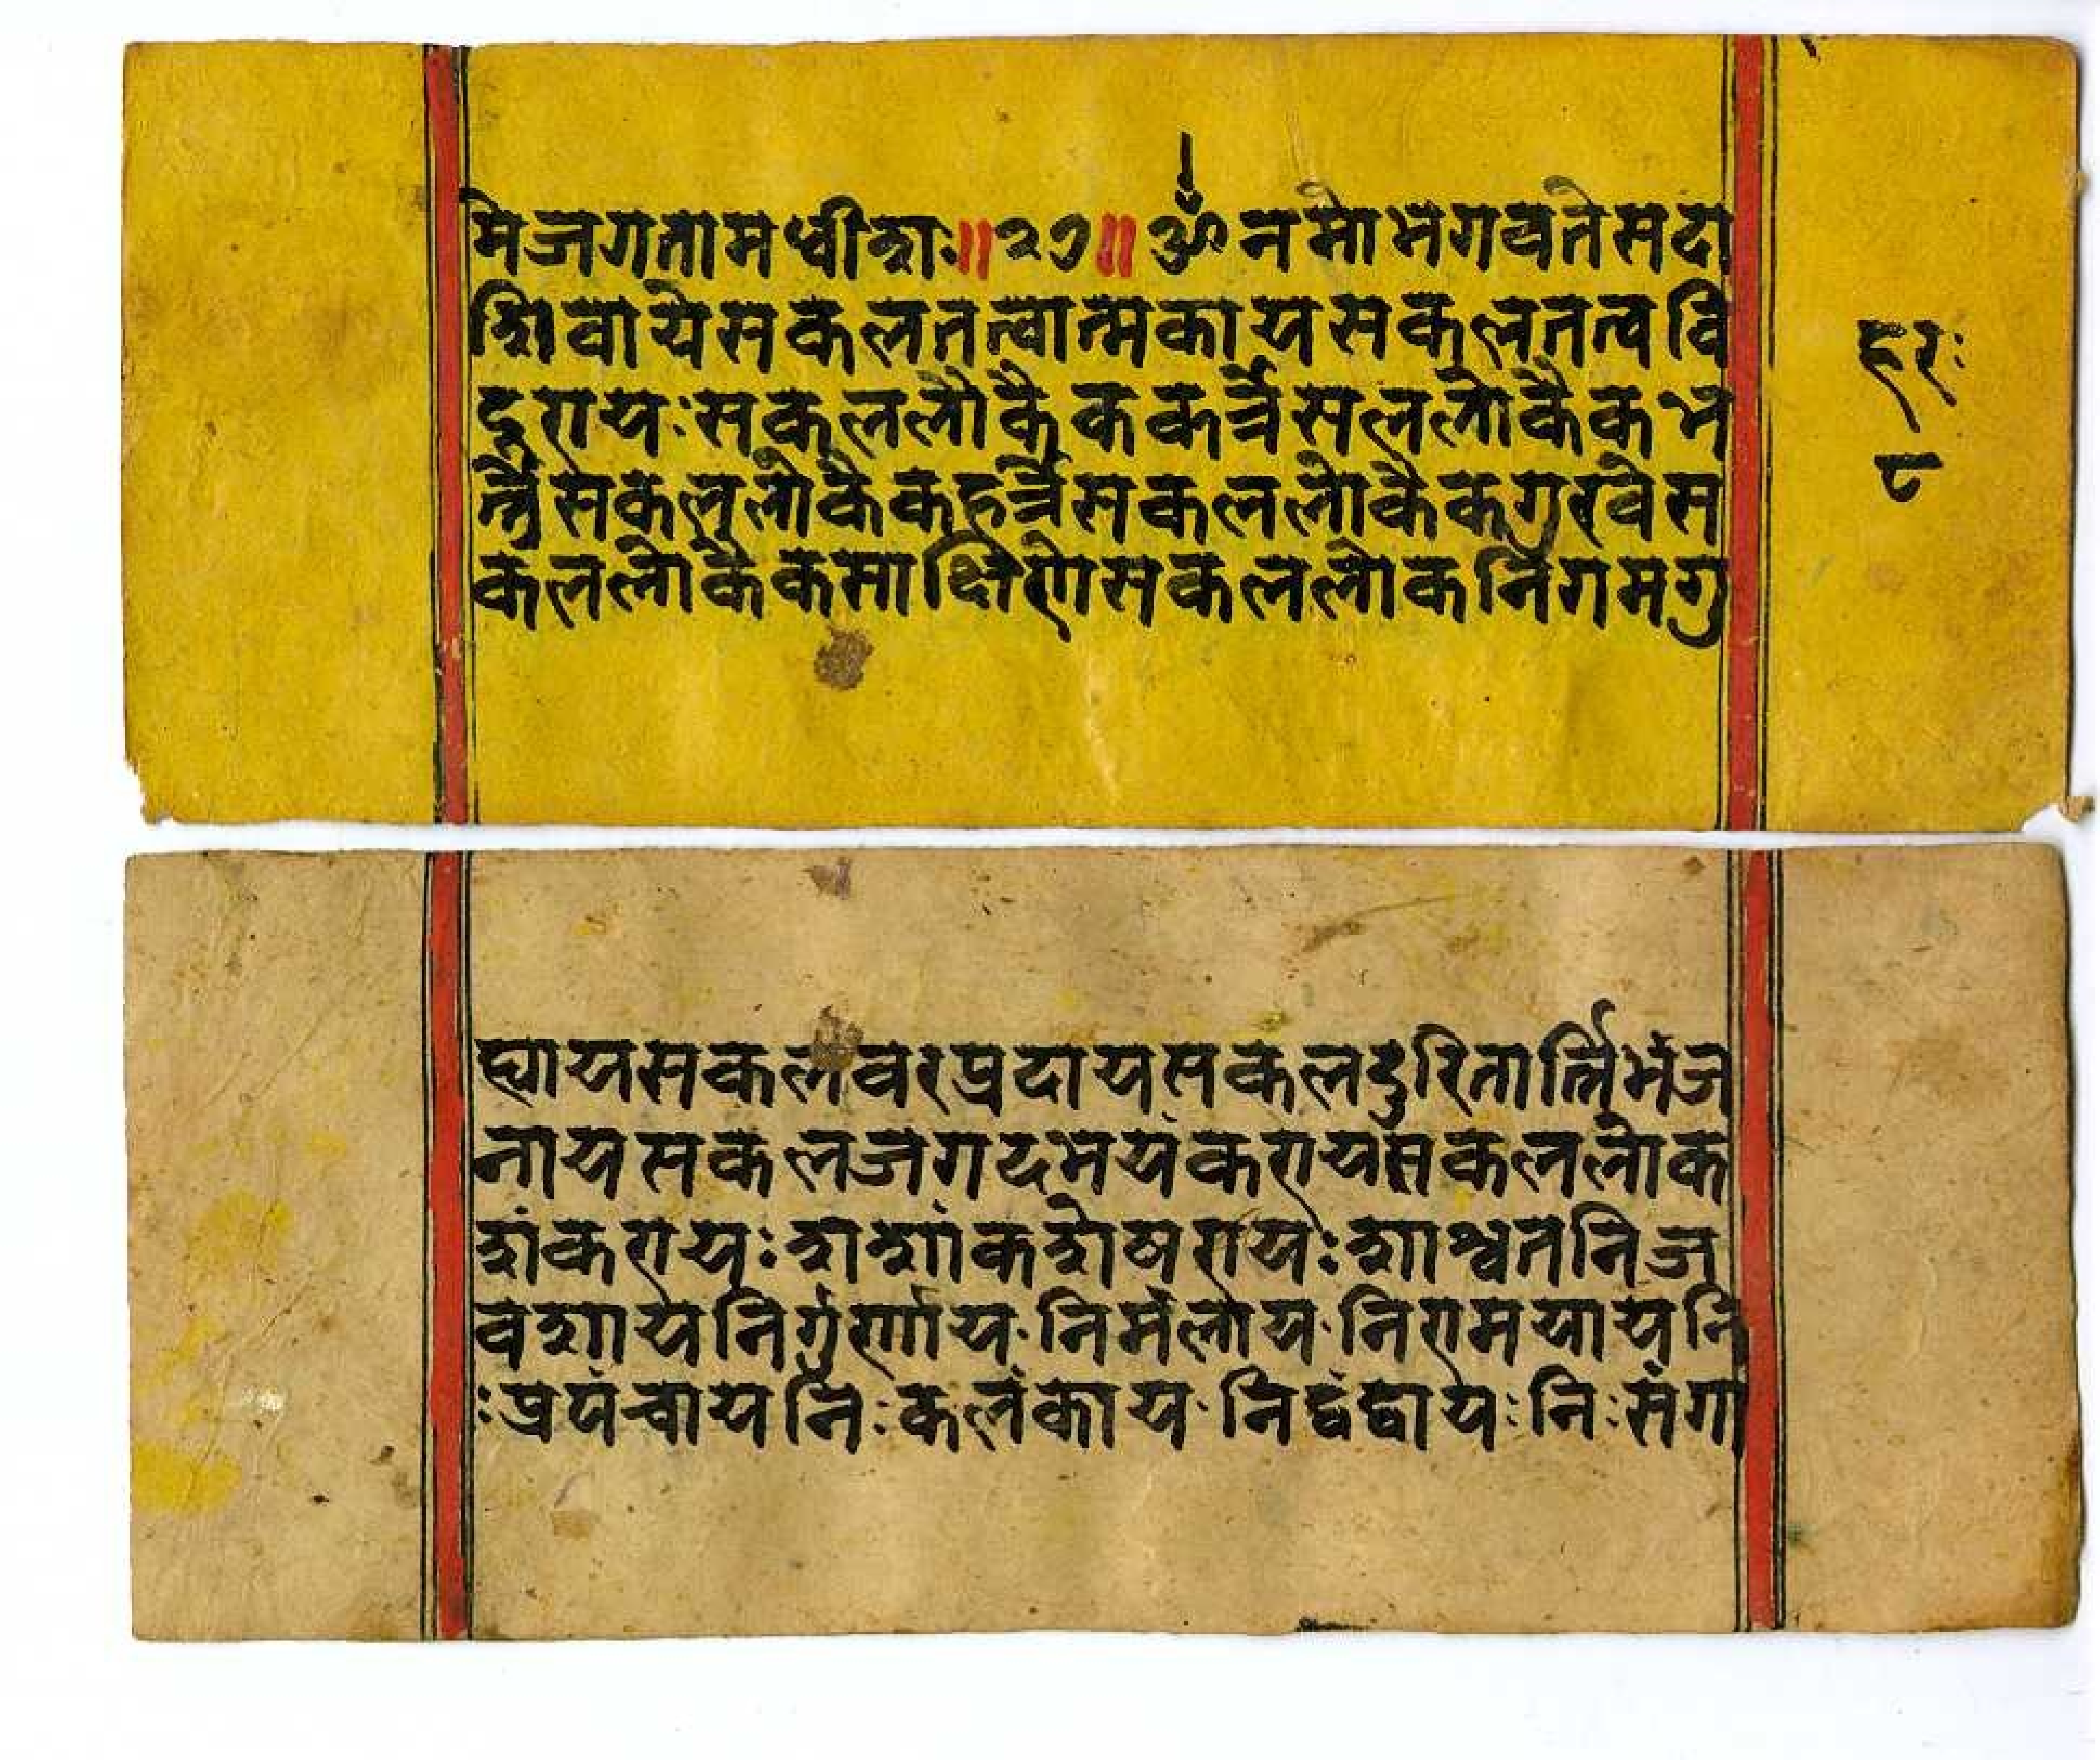 मेजगतामधीशः॥२७॥ॐनमोभगवतेसदा
शिवायेसकलतत्वात्मकायसकलतत्ववि
दुरायःसकललोकैककर्त्रेसललोकैकभ
र्त्रैसकललोकैकहर्त्रैसकललोकैकगुरवेस
कललोकैकसाक्षिणेसकललोकनिगमगु
हरः
८
ह्यायसकलवरप्रदायसकलदुरितार्त्तिभंज
नायसकलजगदभयंकरायसकललोक
शंकरायःशशांकशेखरायःशाश्वतनिज
वशायनिर्गुर्णायनिर्मलायनिरामयायनि
ःप्रपंचायनिःकलंकायनिद्वंद्वायःनिःसंगा